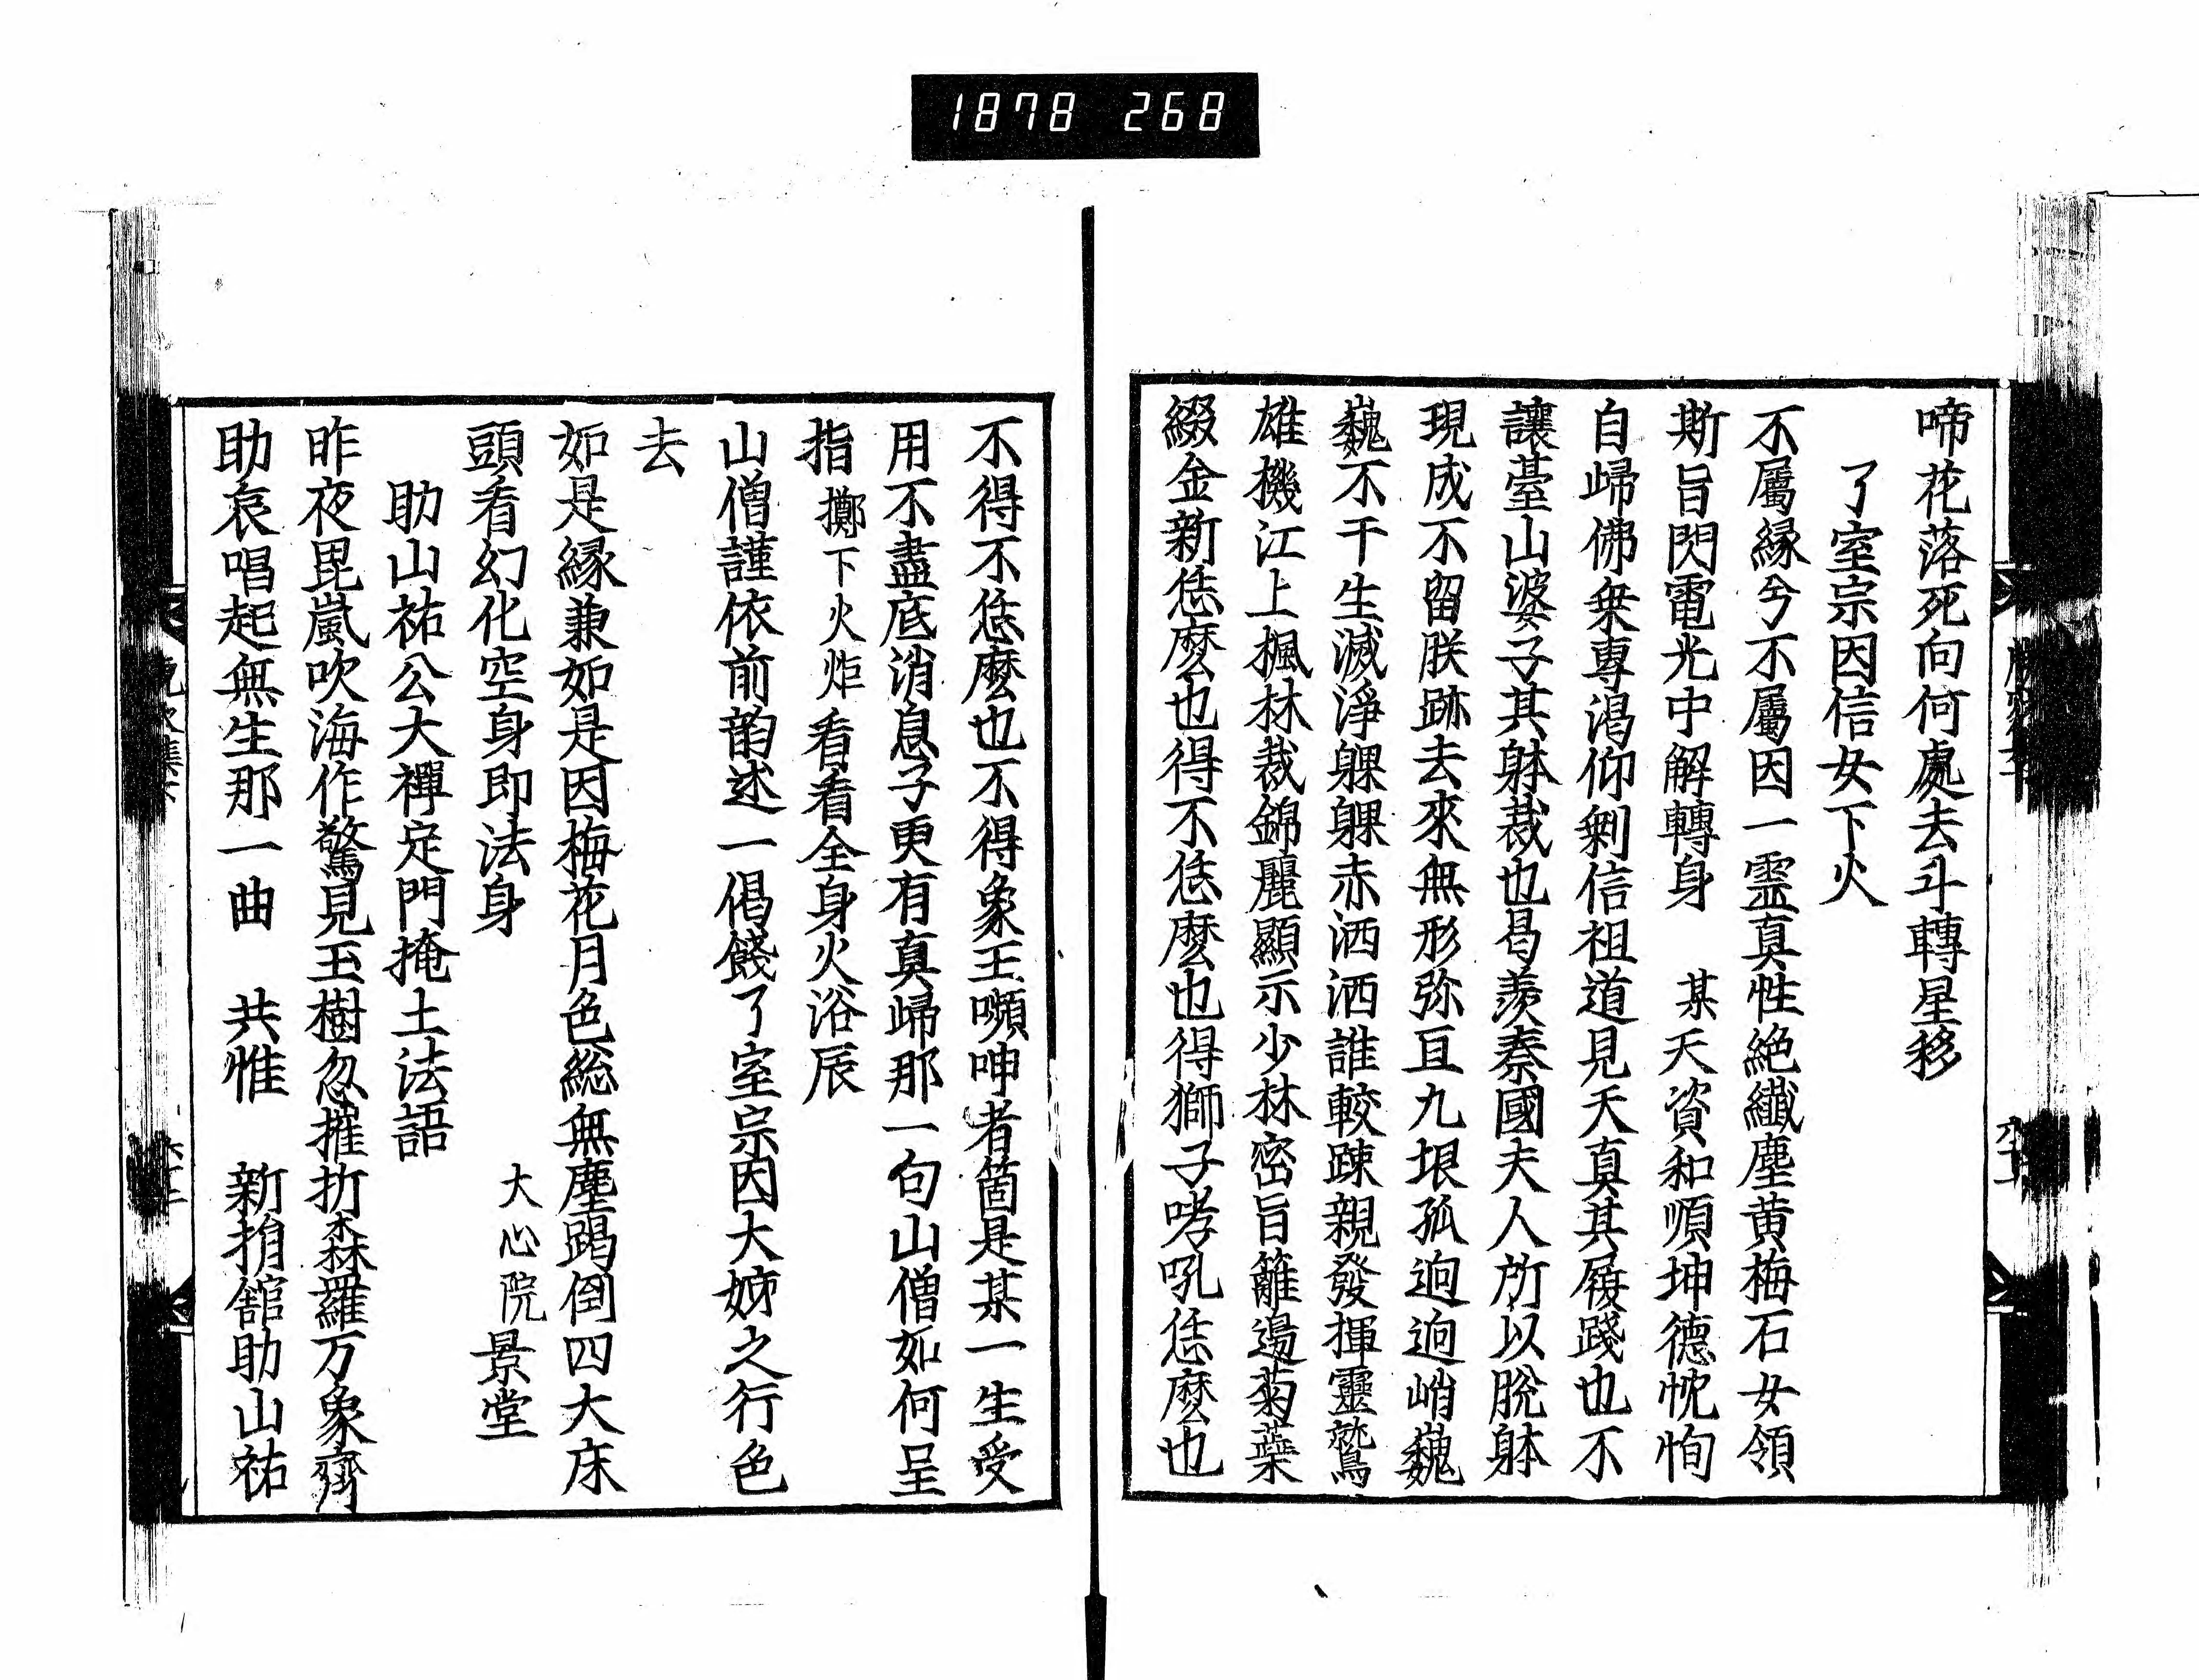 1878 268
啼花落死向何處去斗轉星移
了室宗因信女下火
不屬縁兮不屬因一霊真性絶纖塵黄梅石女領
斯旨閃電光中解轉身 某天資和順坤德忱恂
自歸佛乗專渇仰剰信祖道見天真其履踐也不
讓臺山婆子其躰裁也曷羨秦國夫人所以脫躰
現成不留朕跡去來無形弥亘九垠孤迥迥峭巍
巍不干生滅淨躶躶赤洒洒誰較踈親發揮靈鷲
雄機江上楓林裁錦麗顯示少林密旨籬邊菊蘂
綴金新恁麼也得不恁麼也得獅子哮吼恁麼也
不得不恁麼也不得象王嚬呻者箇是某一生受
用不盡底消息子更有真歸那一句山僧如何呈
指 擲下火炬 看看全身火浴辰
山僧謹依前韵述一偈餞了室宗因大姊之行色
去
如是縁兼如是因梅花月色総無塵踢倒四大床
頭看幻化空身即法身 大心院景堂
助山祐公大禪定門掩土法語
昨夜毘嵐吹海作驚見玉樹忽摧折森羅万象齊
助哀唱起無生那一曲 共惟 新捐舘助山祐